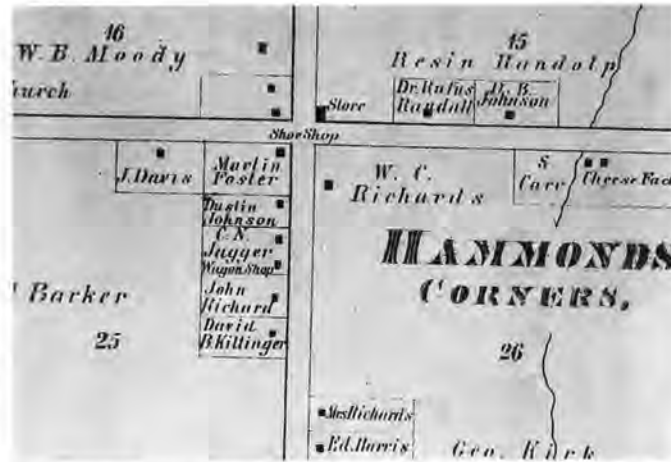 16
W. B. Moody
hurch
15
Resin Randolp
Dr. Rufus
Randall
D. B.
Johnson
Store
Shoe Shop
J. Davis
Marlin
Foster
Dustin
Johnson
C. N.
Jagger
Wagon Shop
John
Richard
David
B. Killinger
Barker
25
W. C.
Richards
S.
Carr
Cheese Fact
HAMMONDS
CORNERS,
26
Mrs Richards
Ed. Harris
Geo. Kirk